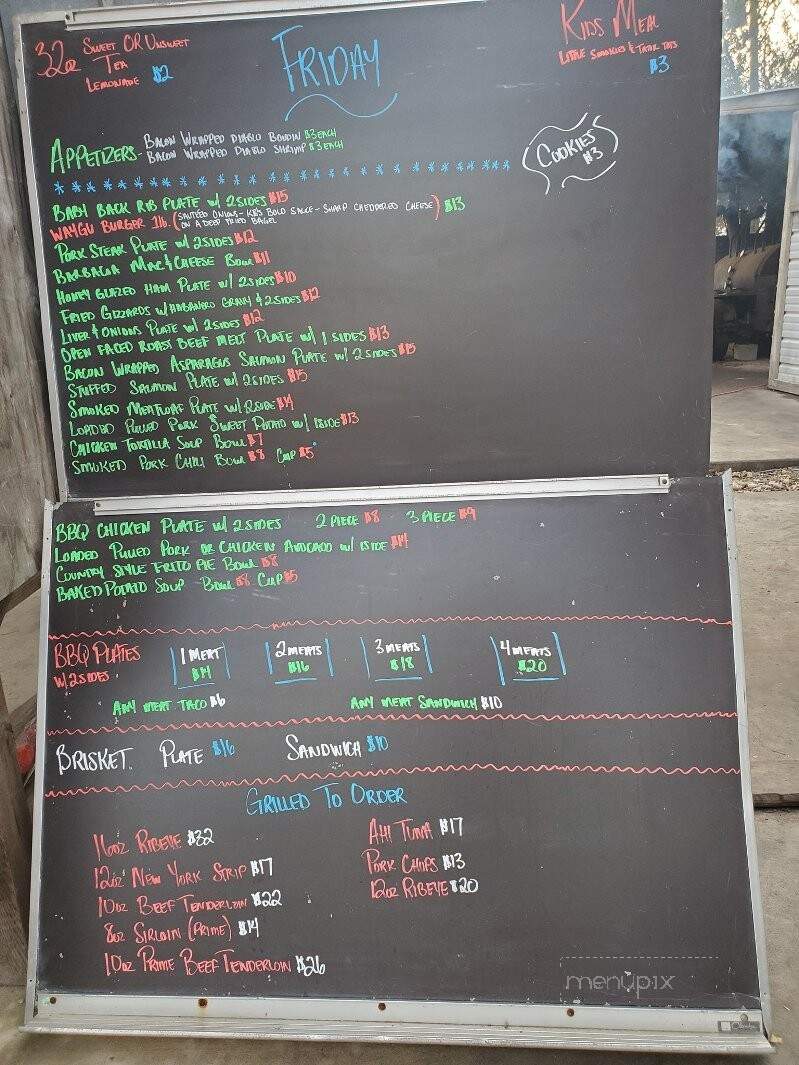 32oz Sweet OR Unsweet
Tea
Lemonade $2
Friday
Kids Meal
Little Smokies & Tatr Tots
$3
Appetizers - Bacon Wrapped Diablo Boudin $3 each
Bacon Wrapped Diablo Shrimp $3 each
Cookies
$3
Baby Back Rib Plate w/ 2 sides $15
Waygu Burger 1lb. (Sauteed Onions - KB's Bold Sauce - Sharp Cheddered Cheese) $13
on a Deep Fried Bagel
Pork Steak Plate w/ 2 sides $12
Barbacoa Mac & Cheese Bowl $11
Honey Glazed Ham Plate w/ 2 sides $10
Fried Gizzards w/ Habanero Gravy & 2 sides $12
Liver & Onions Plate w/ 2 sides $12
Open Faced Roast Beef Melt Plate w/ 1 sides $13
Bacon Wrapped Asparagus Salmon Plate w/ 2 sides $15
Stuffed Salmon Plate w/ 2 sides $15
Smoked Meatloaf Plate w/ 2 side $14
Loaded Pulled Pork Sweet Potato w/ 1 side $13
Chicken Tortilla Soup Bowl $7
Smoked Pork Chili Bowl $8 Cup $5
BBQ Chicken Plate w/ 2 sides 2 piece $8 3 piece $9
Loaded Pulled Pork or Chicken Avocado w/ 1 side $14
Country Style Frito Pie Bowl $8
Baked Potato Soup Bowl $8 Cup $5
BBQ Plates 1 meat 2 meats 3 meats 4 meats
w/ 2 sides $14 $16 $18 $20
Any Meat Taco $6 Any Meat Sandwich $10
Brisket. Plate $16 Sandwich $10
Grilled To Order
16oz Ribeye $32
12oz New York Strip $17
10oz Beef Tenderloin $22
8oz Sirloin (Prime) $14
10oz Prime Beef Tenderloin $26
Ahi Tuna $17
Pork Chops $13
12oz Ribeye $20
menupix